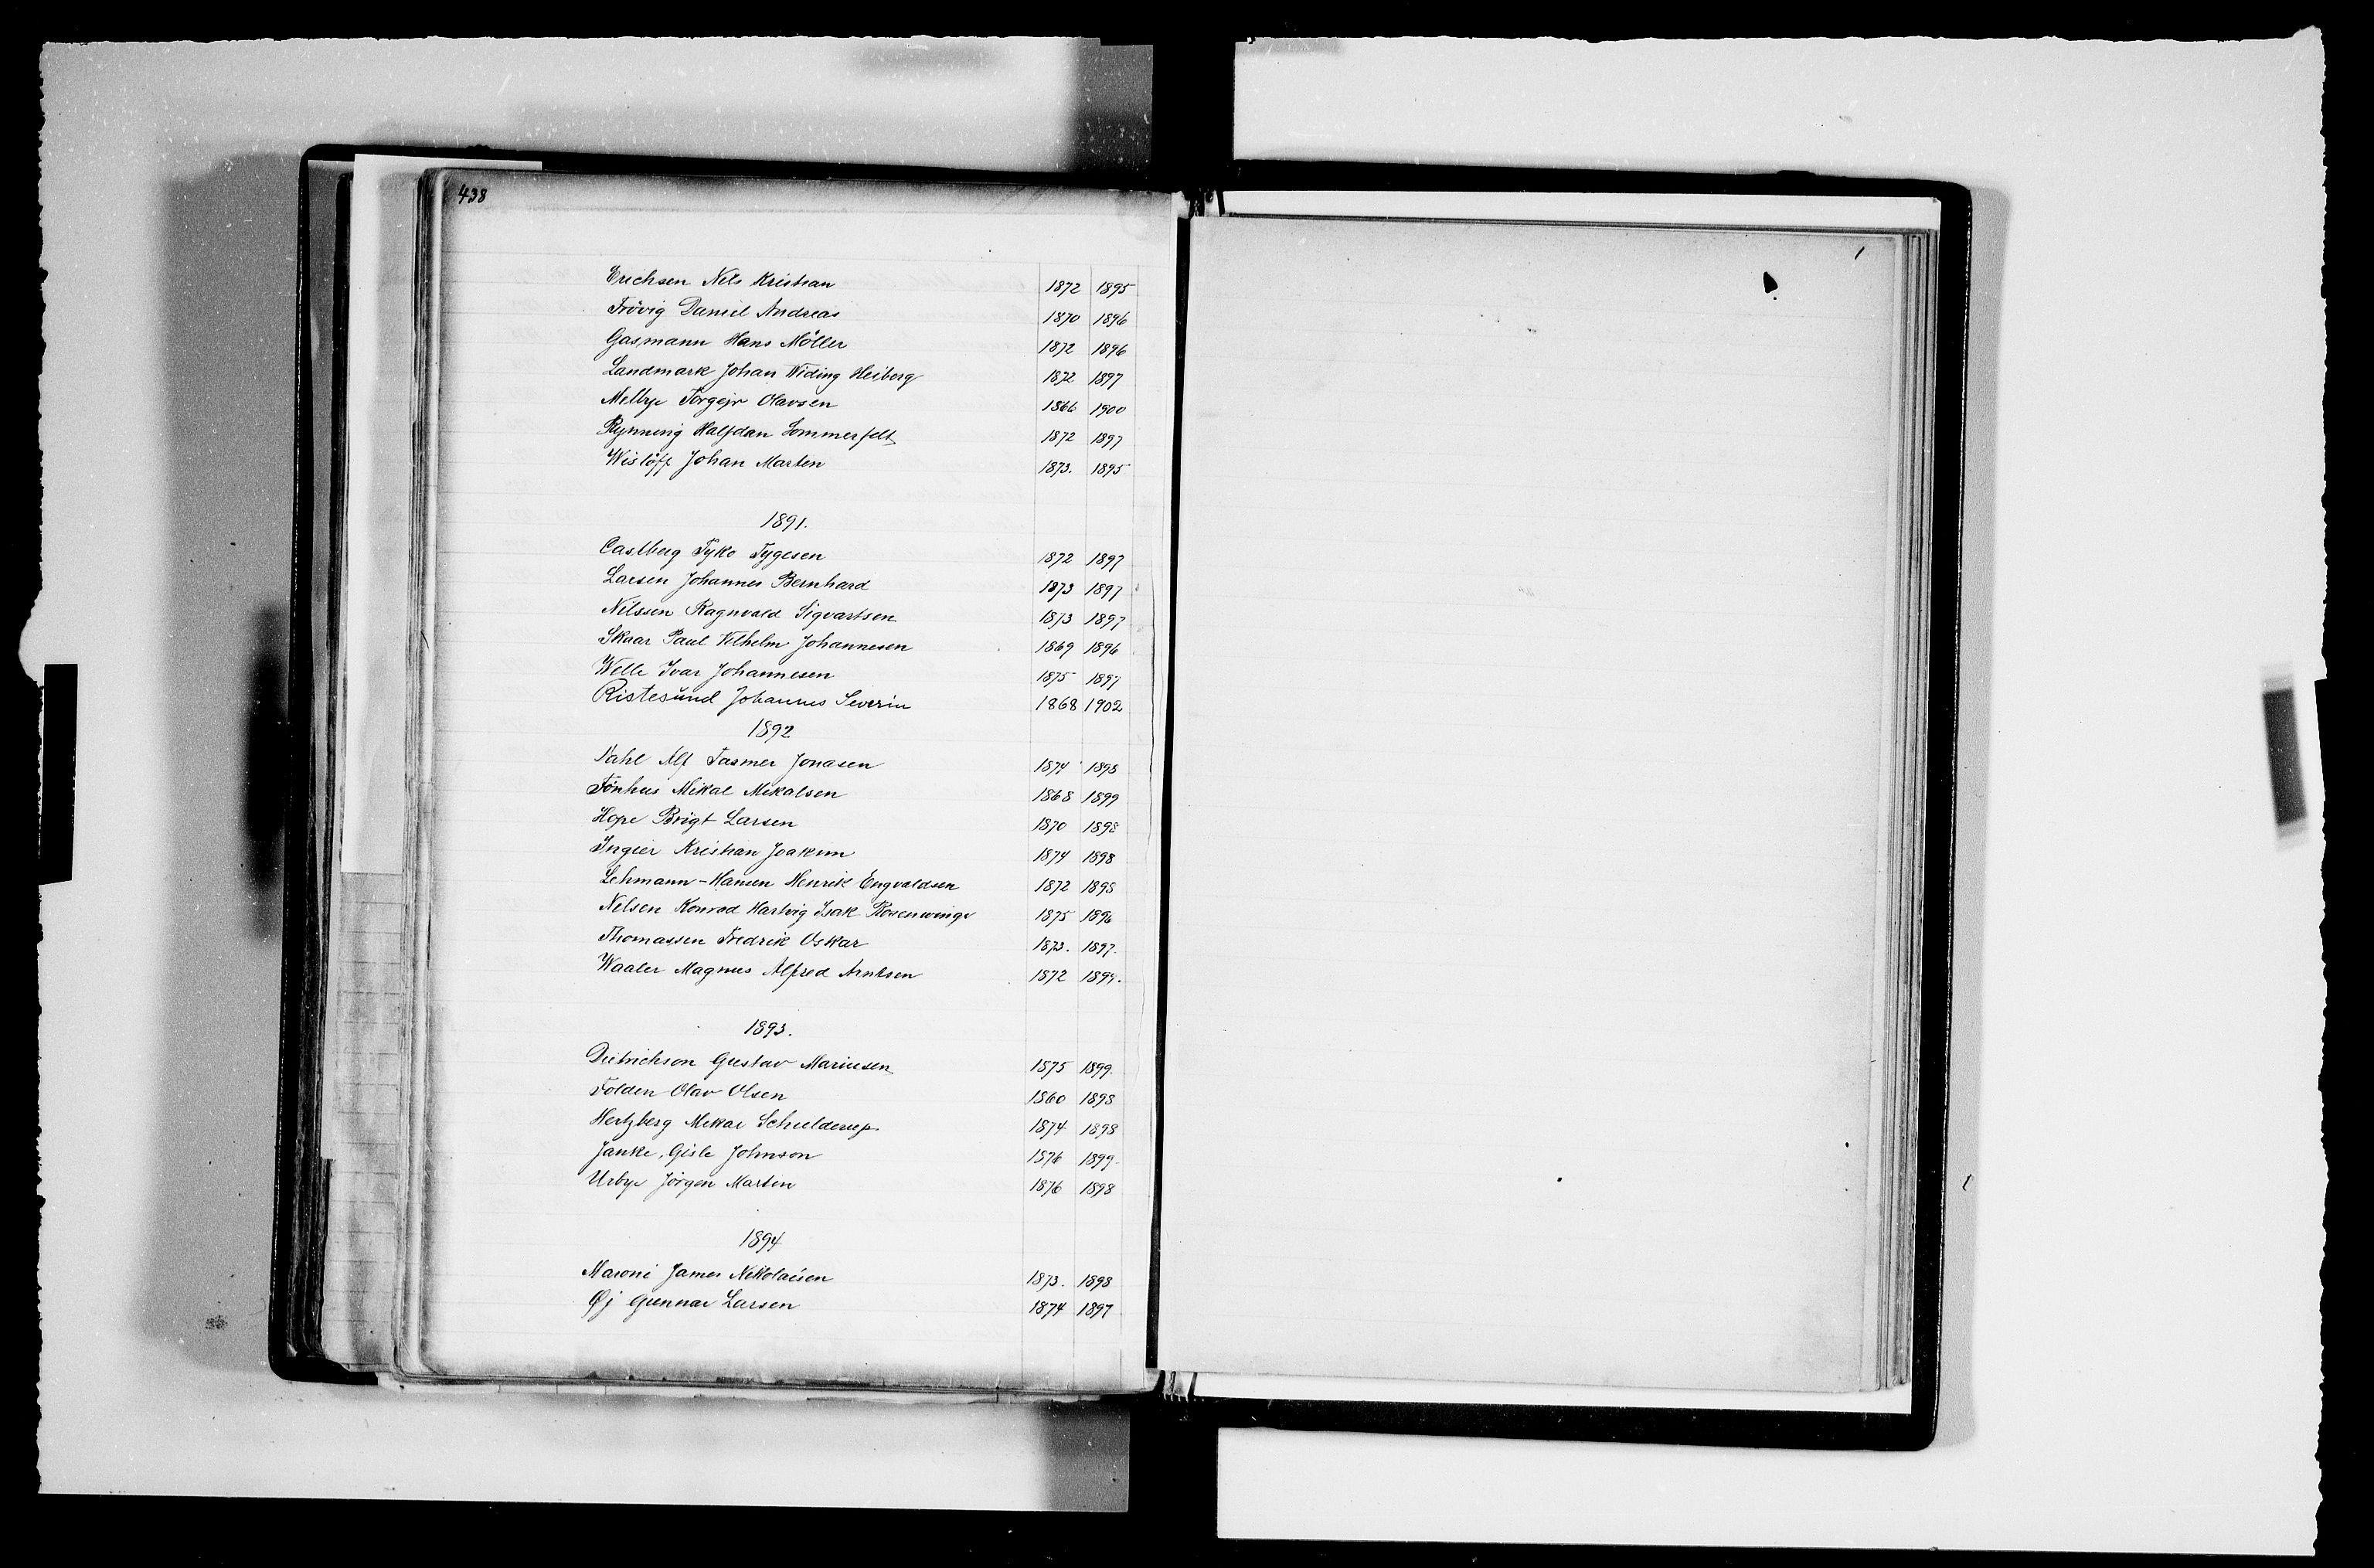 438
Erichsen Nels Kristian 1872 1895
Frövig Daniel Andreas 1870 1896
Gasmann Hans Möller 1872 1896
Landmark Johan Widing Heiberg 1872 1897
Melbye Torgejr Olavsen 1866 1900
Rynning Halfdan Sommerfelt 1872 1897
Wislöff Johan Marten 1873. 1895
1891.
Castberg Tyko Tygesen 1872 1897
Larsen Johannes Bernhard 1873 1897
Nilssen Ragnvald Sigvartsen 1873 1897
Skaar Paul Vilhelm Johannesen 1869 1896
Welle Ivar Johannesen 1875 1897
Ristesund Johannes Severin 1868 1902
1892
Dahl Alf Fasmer Jonasen 1874 1898
Fönhus Mikal Mikalsen 1868 1899
Hope Brigt Larsen 1870 1898
Ingier Kristian Joakim 1874 1898
Lehmann-Hansen Henrik Engvaldsen 1872 1898
Nelsen Konrad Hartvig Isak Rosenvinge 1875 1896
Thomassen Fredrik Oskar 1873. 1897.
Waaler Magnus Alfred Arntsen 1872 1899.
1893.
Dietrichson Gustav Mariusen 1875 1899.
Folden Olav Olsen 1860 1898
Hertzberg Mikal Schielderup 1874 1898
Janke, Gisle Johnson 1876 1899.
Urbye Jörgen Martin 1876 1898
1894
Maroni James Nikolaisen 1873. 1898
Øj Gunnar Larsen 1874 1897
1